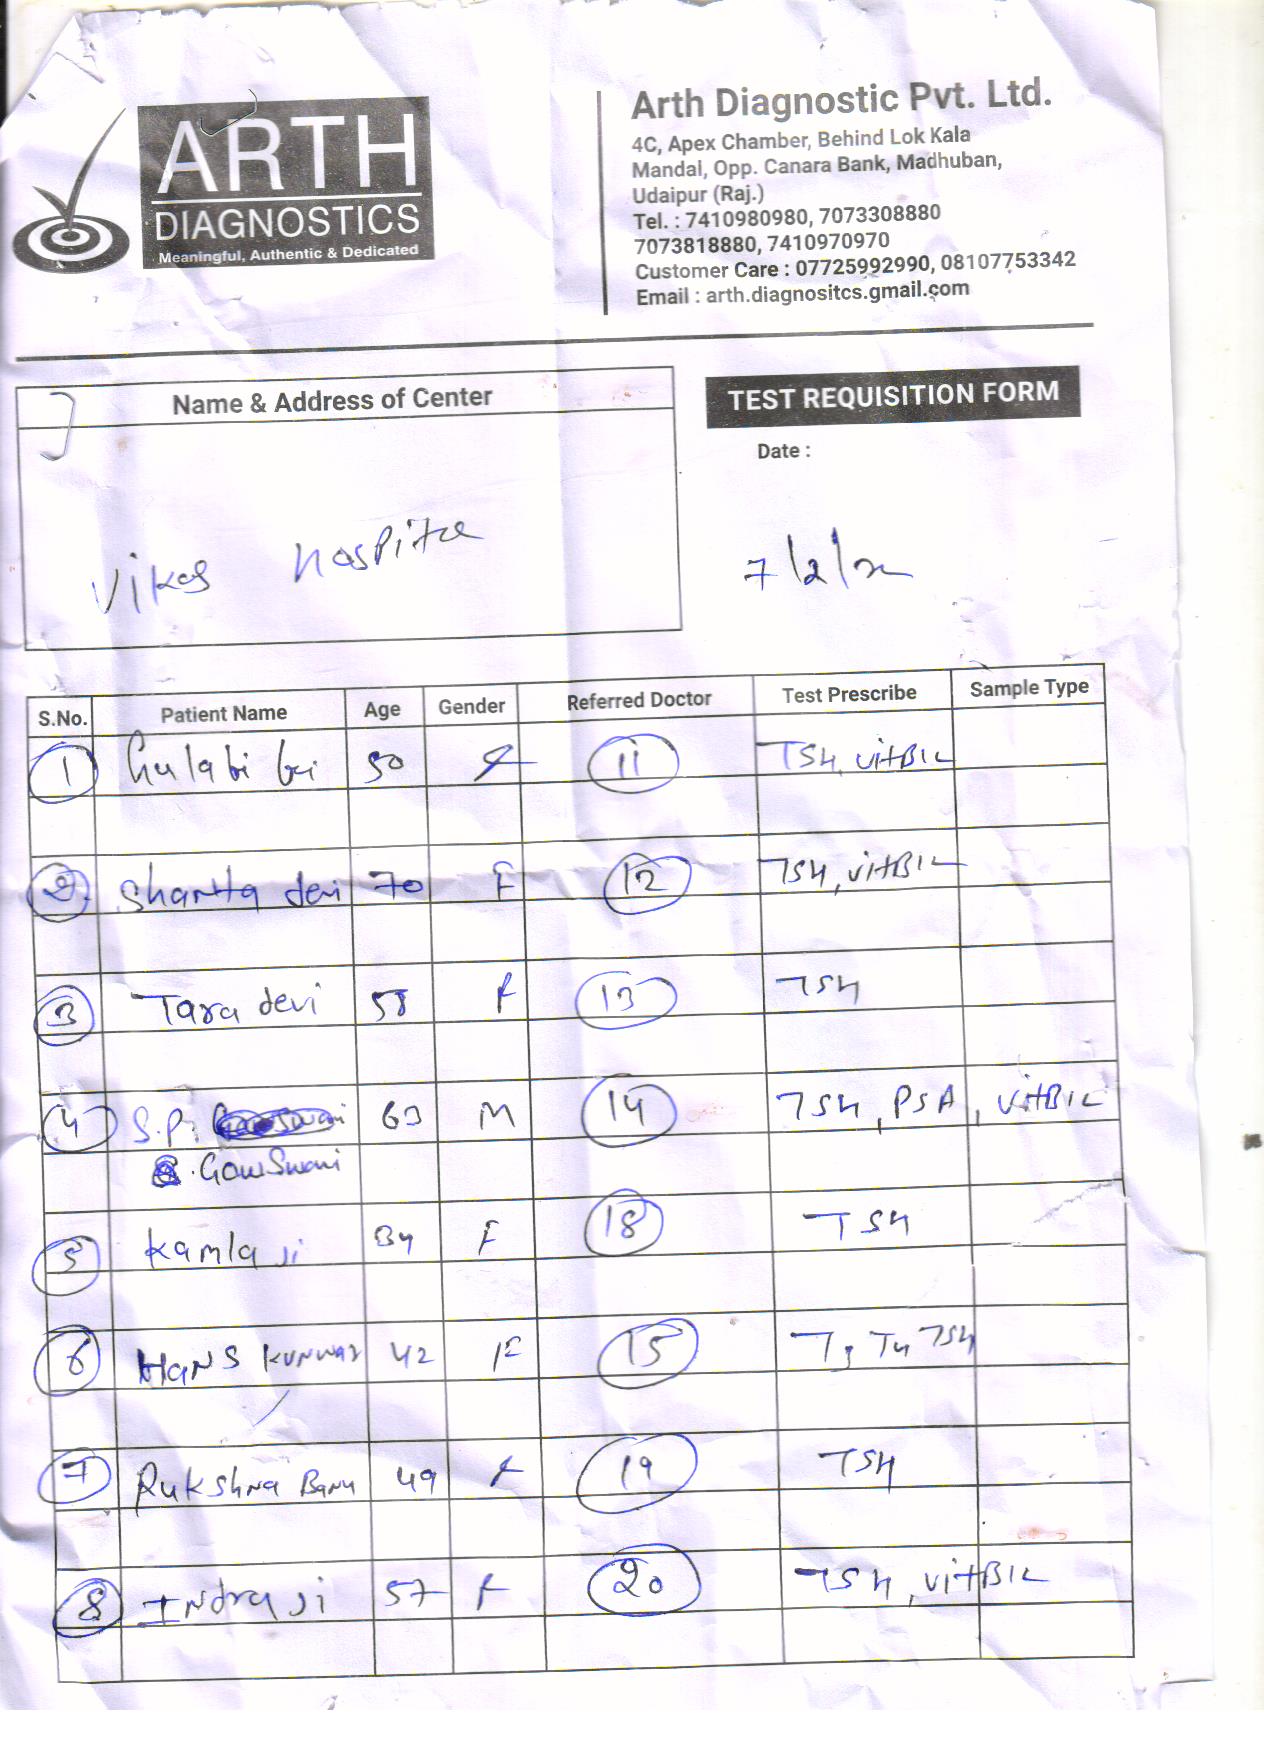 ARTH
DIAGNOSTICS
Meaningful, Authentic & Dedicated
Arth Diagnostic Pvt. Ltd.
4C, Apex Chamber, Behind Lok Kala
Mandal, Opp. Canara Bank, Madhuban,
Udaipur (Raj.)
Tel. : 7410980980, 7073308880
7073818880, 7410970970
Customer Care : 07725992990, 08107753342
Email : arth.diagnositcs.gmail.com
Name & Address of Center
TEST REQUISITION FORM
Date :
Vikas
7/2/
S.No. Patient Name Age Gender Referred Doctor Test Prescribe Sample Type
1 Gulabi bai 50 F 11 TSH, VitB12
2 Shanta devi 70 F 12 TSH, VitB12
3 Tara devi 13 TSH
4 S.P. 63 M 14 TSH, PSA, VitB12
5 Kamla Ji F 18 TSH
6 Hans Kunwar 42 F 15 T3 T4 TSH
7 Rukshna Banu 49 F 19 TSH
8 Indra Ji 57 F 20 TSH, VitB12